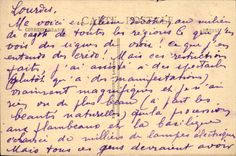 Lourdes.
Me voici en pleine au milieu
de de toutes les régions Ce que je
vois des signes de croix! ce que j'en
entends des credo! Mais ces restrictions
faits, j'ai assisté à des spectacles
(plutôt qu'à des manifestations)
vraiment magnifiques et je n'ai
rien vu de plus beau (à part les
beautés naturelles) que la procession
aux flambeaux et la basilique
de milliers de lampes électriques
Mais tous ces gens devraient avoir